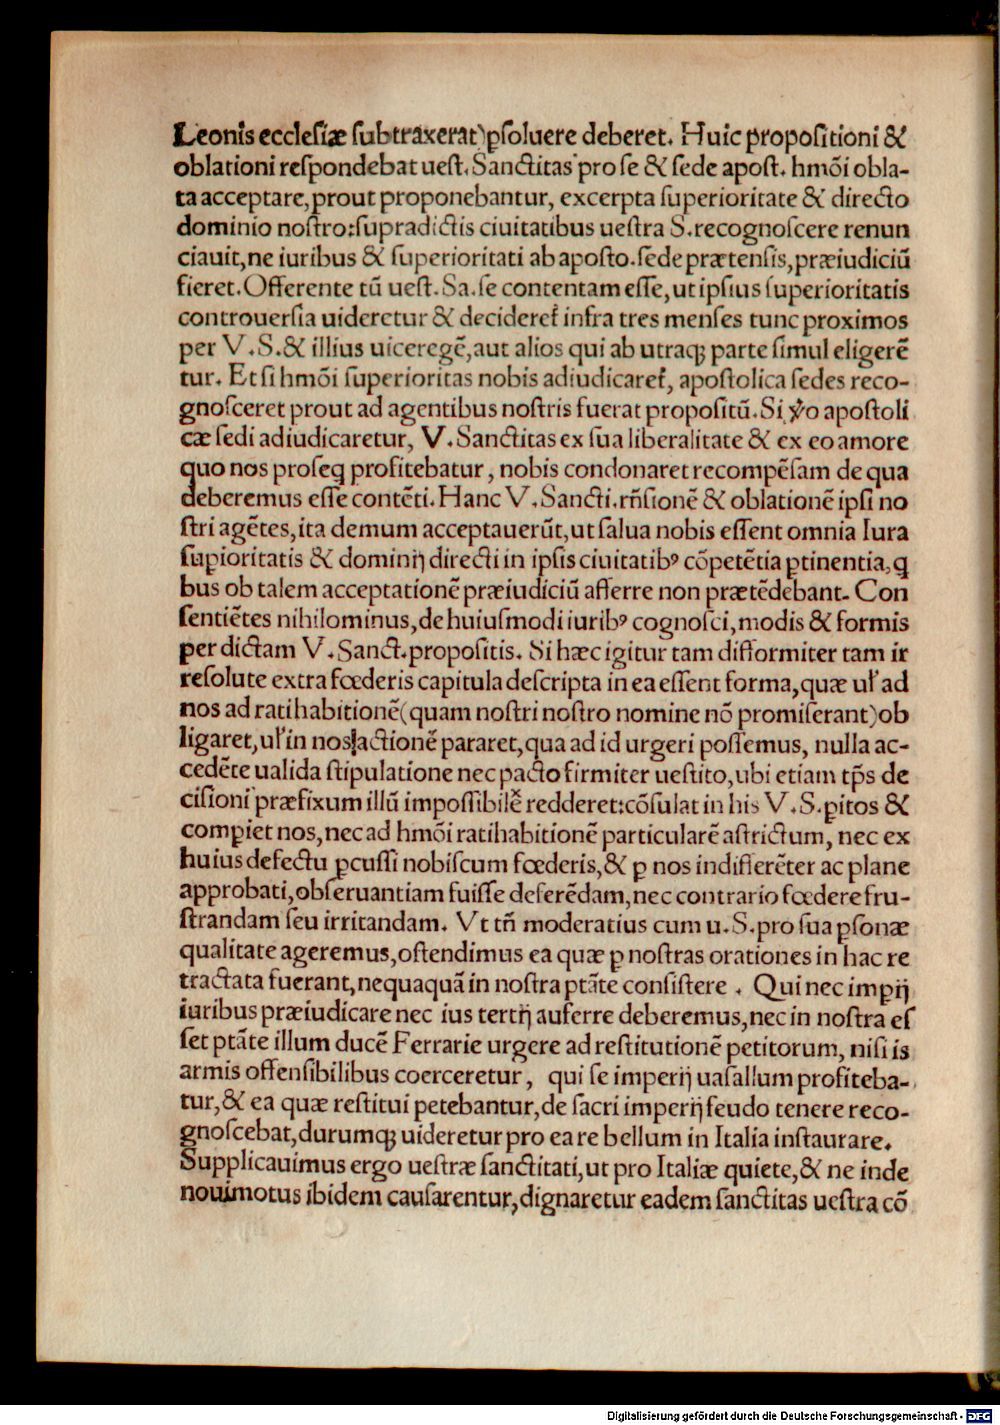 Leonis ecclesiæ ſubtraxerat)ꝑſoluere deberet. Huic propoſitioni &
oblationi reſpondebat ueſt. Sanctitas pro ſe & ſede apoſt. hmōi obla-
ta acceptare, prout proponebantur, excerpta ſuperioritate & directo
dominio noſtro: ſupradictis ciuitatibus ueſtra S. recognoſcere renun
ciauit, ne iuribus & ſuperioritati ab apoſto. ſede prætenſis, præiudiciū
fieret. Offerente tū ueſt. Sa. ſe contentam eſſe, ut ipſius ſuperioritatis
controuerſia uideretur & decideret᷑ infra tres menſes tunc proximos
per V. S. & illius uiceregē, aut alios qui ab utraqꝫ parte ſimul eligerē
tur. Et ſi hmōi ſuperioritas nobis adiudicaret᷑, apoſtolica ſedes reco-
gnoſceret prout ad agentibus noſtris fuerat propoſitū. Si ꝟo apoſtoli
cæ ſedi adiudicaretur, V. Sanctitas ex ſua liberalitate & ex eo amore
quo nos proſeq̄ profitebatur, nobis condonaret recompēſam de qua
deberemus eſſe contēti. Hanc V. Sancti. rn̄ſionē & oblationē ipſi no
ſtri agētes, ita demum acceptauerūt, ut ſalua nobis eſſent omnia Iura
ſuꝑioritatis & dominij directi in ipſis ciuitatibꝰ cōpetētia ꝑtinentia, q̄
bus ob talem acceptationē præiudiciū afferre non prætēdebant. Con
ſentiētes nihilominus, de huiuſmodi iuribꝰ cognoſci, modis & formis
per dictam V. Sanct. propoſitis. Si hæc igitur tam difformiter tam ir
reſolute extra fœderis capitula deſcripta in ea eſſent forma, quæ uł ad
nos ad ratihabitionē (quam noſtri noſtro nomine nō promiſerant) ob
ligaret, uł in nos actionē pararet, qua ad id urgeri poſſemus, nulla ac-
cedēte ualida ſtipulatione nec pacto firmiter ueſtito, ubi etiam tp̄s de
ciſioni præfixum illū impoſſibilē redderet: cōſulat in his V. S. pitos &
compiet nos, nec ad hmōi ratihabitionē particularē aſtrictum, nec ex
huius defectu ꝑcuſſi nobiſcum fœderis, & ꝑ nos indifferēter ac plane
approbati, obſeruantiam fuiſſe deferēdam, nec contrario fœdere fru-
ſtrandam ſeu irritandam. Vt tn̄ moderatius cum u. S. pro ſua ꝑſonæ
qualitate ageremus, oſtendimus ea quæ ꝑ noſtras orationes in hac re
tractata fuerant, nequaquā in noſtra ptāte conſiſtere . Qui nec imperij
iuribus præiudicare nec ius tertij auferre deberemus, nec in noſtra eſ
ſet ptāte illum ducē Ferrarie urgere ad reſtitutionē petitorum, niſi is
armis offenſibilibus coerceretur, qui ſe imperij uaſallum profiteba-
tur, & ea quæ reſtitui petebantur, de ſacri imperij feudo tenere reco-
gnoſcebat, durumqꝫ uideretur pro ea re bellum in Italia inſtaurare.
Supplicauimus ergo ueſtræ ſanctitati, ut pro Italiæ quiete, & ne inde
noui motus ibidem cauſarentur, dignaretur eadem ſanctitas ueſtra cō
Digitalisierung gefördert durch die Deutsche Forschungsgemeinschaft - DFG